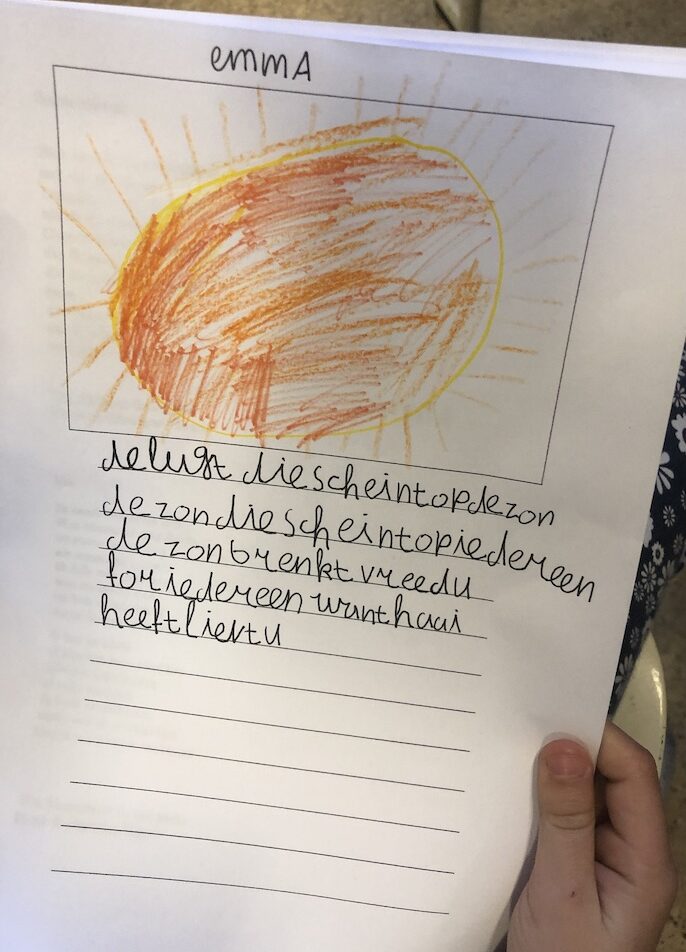 emmA
delugt diescheintopdezon
dezondiescheintopiedereen
dezonbrenktvreedu
foriedereenwanthaai
heeftliertu